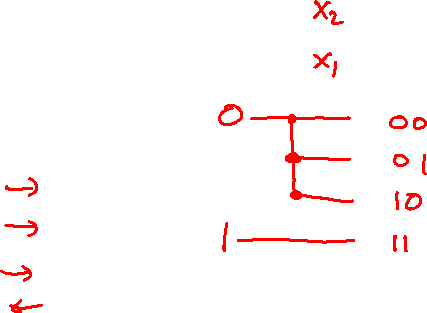 x₂
x₁
0 00
01
10
1 11
→
→
→
←